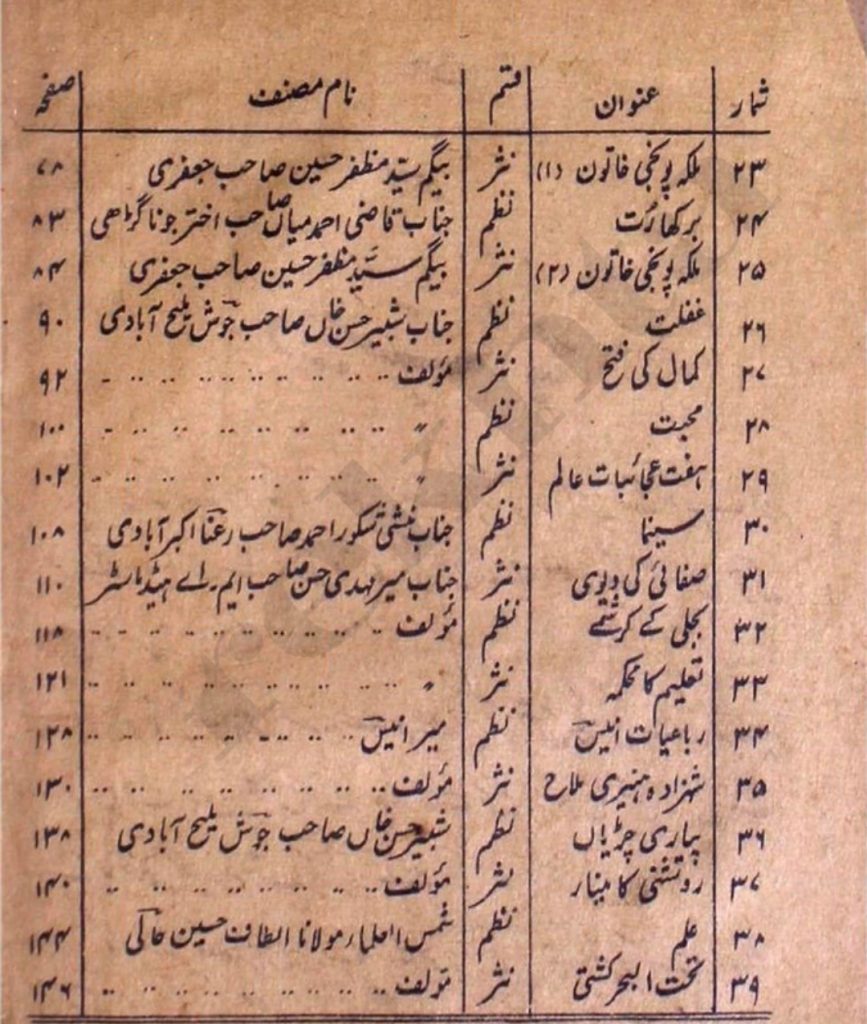 شمار عنوان قسم نام مصنف صفحہ
۲۳ ملکہ پونجی خاتون (۱) نثر بیگم سیّد مظفر حسین صاحب جعفری ۷۸
۲۴ برکھارُت نظم جناب قاضی احمد میاں صاحب اختر جوناگڑھی ۸۳
۲۵ ملکہ پونجی خاتون (۲) نثر بیگم سیّد مظفر حسین صاحب جعفری ۸۴
۲۶ غفلت نظم جناب شبیر حسن خاں صاحب جوش ملیح آبادی ۹۰
۲۷ کمال کی فتح نثر مؤلف ۹۲
۲۸ محبت نظم 〃 ۱۰۰
۲۹ ہفت عجائبات عالم نثر 〃 ۱۰۲
۳۰ سینما نظم جناب منشی تسکور احمد صاحب رعنا اکبر آبادی ۱۰۸
۳۱ صفائی کی دیوی نثر جناب میر مہدی حسن صاحب ایم۔ اے ہیڈ ماسٹر ۱۱۰
۳۲ بجلی کے کرشمے نظم مؤلف ۱۱۸
۳۳ تعلیم کا محکمہ نثر 〃 ۱۲۱
۳۴ رباعیات انیس نظم میر انیس ۱۲۸
۳۵ شہزادہ ہنیری ملاح نثر مؤلف ۱۳۰
۳۶ پیاری چڑیاں نظم شبیر حسن خاں صاحب جوش ملیح آبادی ۱۳۸
۳۷ روشنی کا مینار نثر مؤلف ۱۴۰
۳۸ علم نظم شمس العلماء مولانا الطاف حسین حالی ۱۴۴
۳۹ تحت البحر کشتی نثر مؤلف ۱۴۶